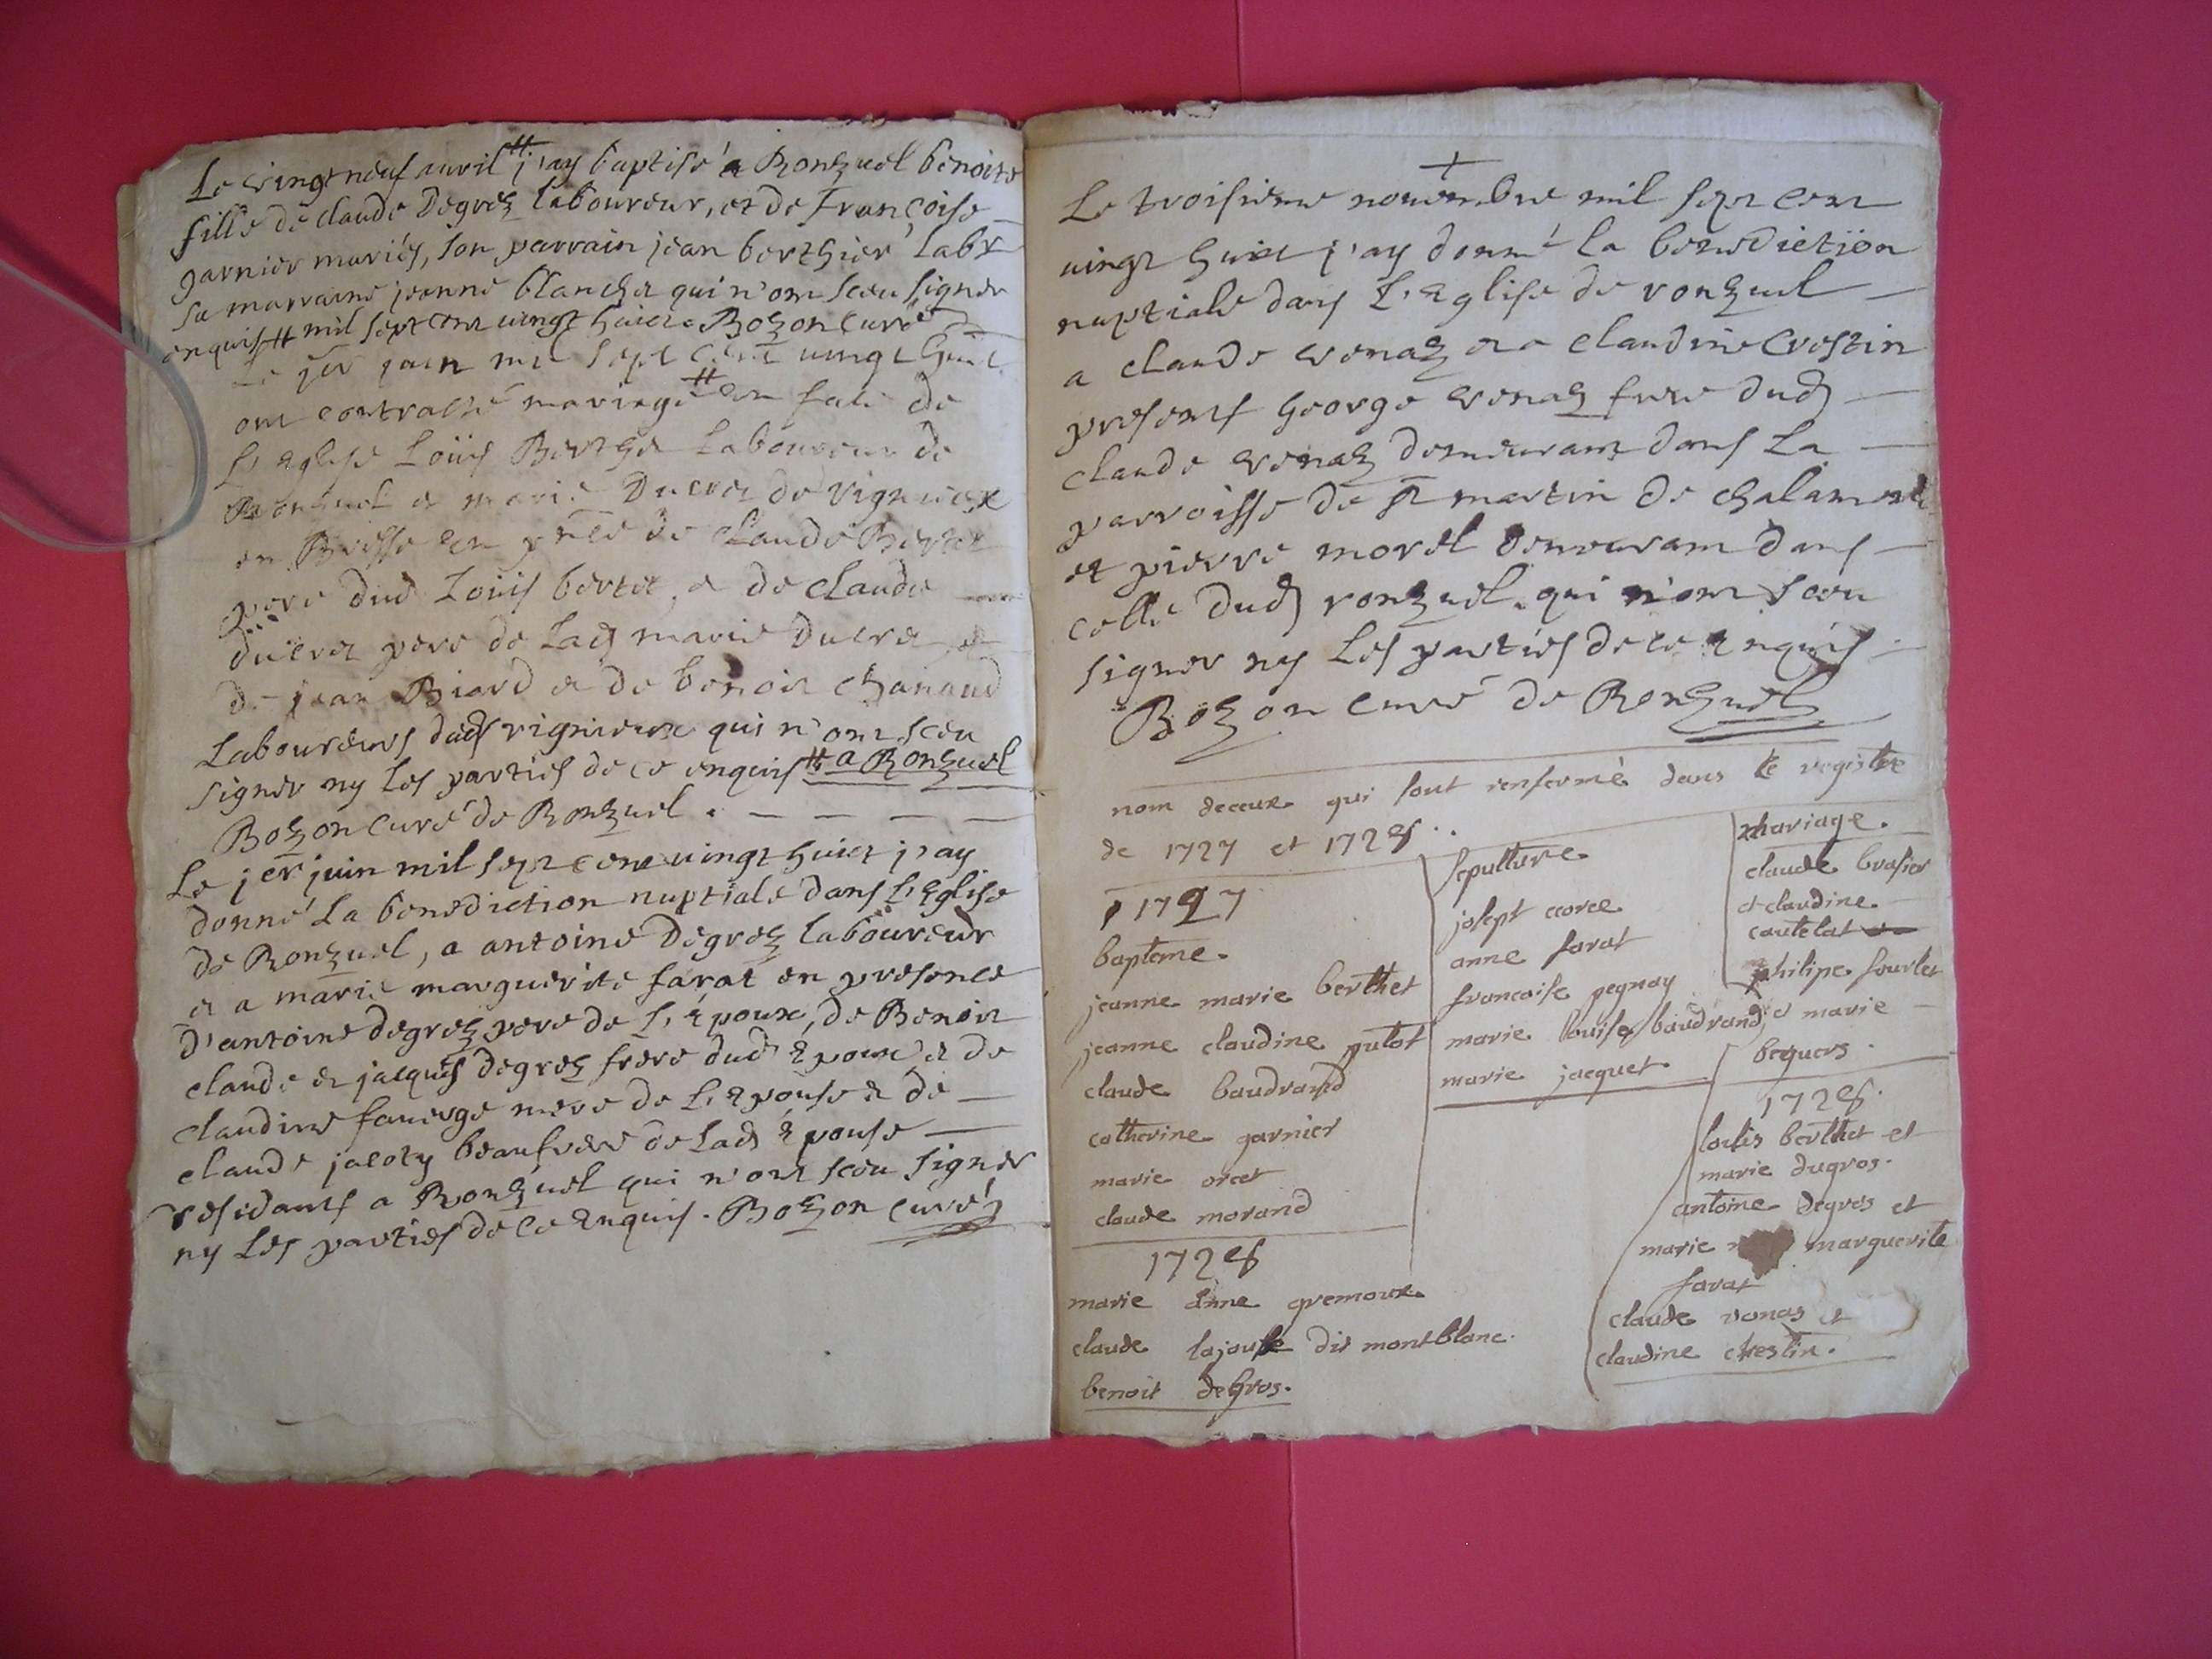 Le vingt neuf avril # j'ay baptisé a Ronzuel benoite
fille de claude Degrez laboureur, et de Françoise
garnier mariés, son parrain jean berthier labr
sa marraine jeanne blanchet qui n'ont sceu signer
enquis # mil sept cent vingt huict. Bozon curé
Le jer juin mil sept cent vingt huit
ont contracté mariage # en face de
L'Eglise Loüis Berthet Laboureur de
Ronzuel et marie Ducret de rignieux
en Bresse en pnce de Claude Bertet
pere dud Loüis bertet, et de claude
ducret pere de lad marie Ducret et
de jean Biard et de benoit chanaud
Laboureurs dud rignieux qui n'ont sceu
signer ny les parties de ce enquis # a Ronzuel
Bozon curé de Ronzuel.
Le jer juin mil sept cent vingt huict j'ay
donné la benediction nuptiale dans l'Eglise
de Ronzuel, a antoine Degrez laboureur
et a marie marguerite farat en presence
d'antoine degrez pere de l'Epoux, de Benoit
claude et jacques degrez frere dud Epoux et de
claudine faverge mere de l'Epouse et de
claude jacoty beaufrere de lad Epouse
residants a Ronzuel qui n'ont sceu signer
ny les parties de ce enquis. Bozon curé
+
Le troisieme novembre mil sept cent
vingt huict j'ay donné la benedictïon
nuptiale dans L'Eglise de ronzuel
a claude venaz et a claudine Crestin
presents George venaz frere dud
claude venaz demeurant dans la
parroisse de st martin de chalamont
et pierre morel demeurant dans
celle dud ronzuel qui n'ont sceu
signer ny les parties de ce enquis
Bozon curé de Ronzuel
nom deceux qui sont renfermé dans le registre
de 1727 et 1728..
1727
bapteme.
jeanne marie berthet
jeanne claudine putot
claude baudrand
catherine garnier
marie orcet
claude morand
1728
marie anne gremoux
claude lajouse dit montblanc.
benoit deGros.
Sepulture
josept
anne farat
francoise pegnay
marie louise baudrand
marie jacquet
mariage.
claude brasier
et claudine
cautelat
philipe fourlet
et marie
bequers.
1728.
louis berthet et
marie dugros.
antoine degros et
marie marguerite
farat
claude vonas et
claudine chestin.